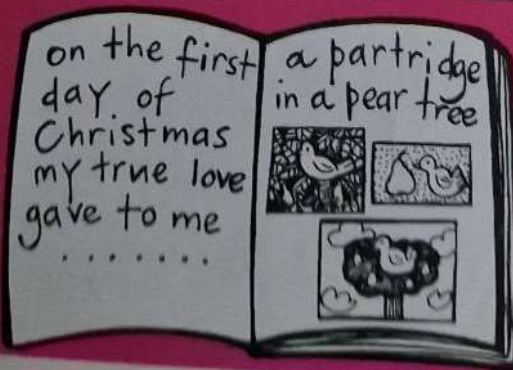 on the first
day of
Christmas
my true love
gave to me
.......
a partridge
in a pear tree